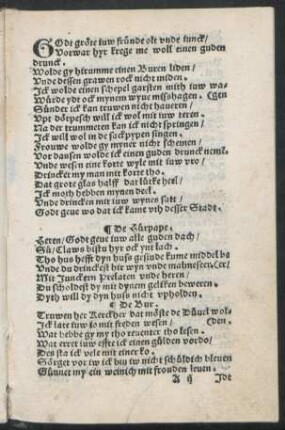 GOdt gröte iuw fründe olt vnde iunck/
Vorwar hyr krege me woll einen guden
drunck.
Wolde gy hirumme einen Buren liden/
Vnde dessen grawen rock nicht miden.
Ick wolde einen schepel garsten mith iuw wa-
Würde ydt ock mynem wyue misshagen. (gen
Sünder ick kan truwen nicht houeren/
Vpt dörpesch will ick wol mit iuw
Na der trummeten kan ick nicht springen/
Ick will wol in de sackpypen singen.
Frouwe wolde gy myner nicht schemen/
Vor dausen wolde ick einen guden drunck nemen.
Vnde wesen eine korte wyle mit iuw vro/
Drincket my man mit korte tho.
Dat grote glas halff dat lütke heel/
Ick moth hebben mynen deel.
Vnde drincken mit iuw wynes satt/
Godt geue wo dat ick kame vth desser Stadt.
¶ De Hürpape.
Heren/ Godt geue iuw alle guden dach/
Sü/ Claws bistu hyr ock ynt lach.
Tho hus hefft dyn husgesinde kume middel ba
Vnde du drinckest hir wyn vnde malmeser. (er/
Mit Junckern Prelaten vnde heren/
Du scholdest dy mit dynem gelicken beweren.
Dyth will dy dyn husz nicht vpholden.
¶ De Bur.
Truwen her Kerckher dat möste de Düuel wol-
Ick late iuw io mit freden wesen/ (den.
Wat hebbe gy my tho leuenter tho lesen.
Wat erret iuw effte ick einen gülden vordo/
Des sta ick vele mit einer ko.
Sörget vor iw ick bin iw nicht schüldich bleuen
Günnet my ein weinich mit frouden leuen.
A ij Jdt